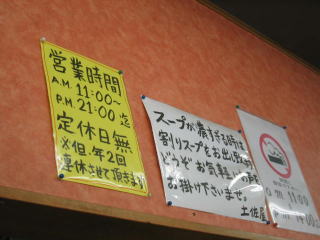 営業時間
A.M. 11:00~
P.M. 21:00 迄
定休日無
※但.年2回
連休させて頂きます
スープが濃すぎる時は
割りスープをお出し致します
どうぞお気軽にお声
お掛け下さいませ。
土佐屋
11:00
14:00